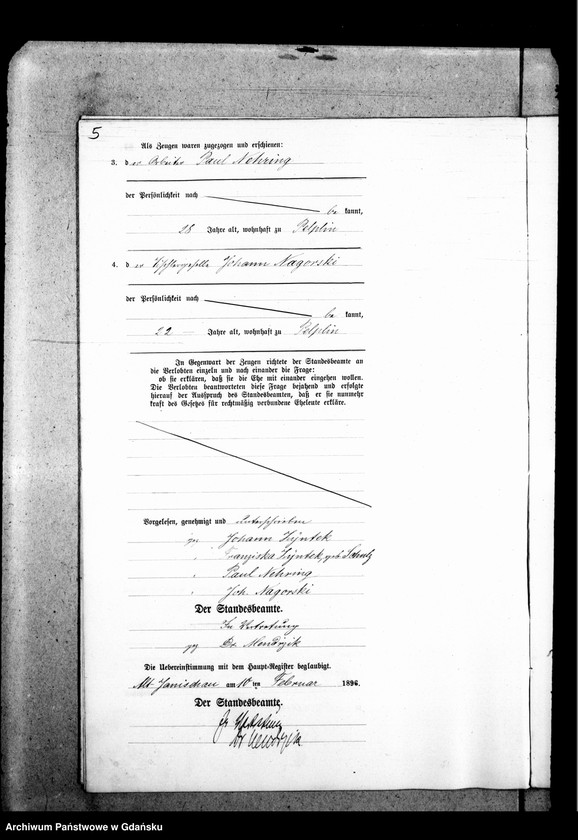 5
Als Zeugen waren zugezogen und erschienen:
3. der Arbeiter Paul Nehring
der Persönlichkeit nach
bekannt,
28 Jahre alt, wohnhaft zu Pelplin
4. der Johann Nagorski
der Persönlichkeit nach
bekannt,
22 Jahre alt, wohnhaft zu Pelplin
In Gegenwart der Zeugen richtete der Standesbeamte an
die Verlobten einzeln und nach einander die Frage:
ob sie erklären, daß sie die Ehe mit einander eingehen wollen.
Die Verlobten beantworteten diese Frage bejahend und erfolgte
hierauf der Ausspruch des Standesbeamten, daß er sie nunmehr
kraft des Gesetzes für rechtmäßig verbundene Eheleute erkläre.
Vorgelesen, genehmigt und unterschrieben
gz Johann Zyntek
" Franziska Zyntek, geb. Schulz
" Paul Nehring
" Joh. Nagorski
Der Standesbeamte.
In Vertretung
gz Dr. Mendrzik
Die Uebereinstimmung mit dem Haupt-Register beglaubigt.
Alt Janischau am 10 ten Februar 1896.
Der Standesbeamte.
In Vertretung
Dr Mendrzik
Archiwum Państwowe w Gdańsku